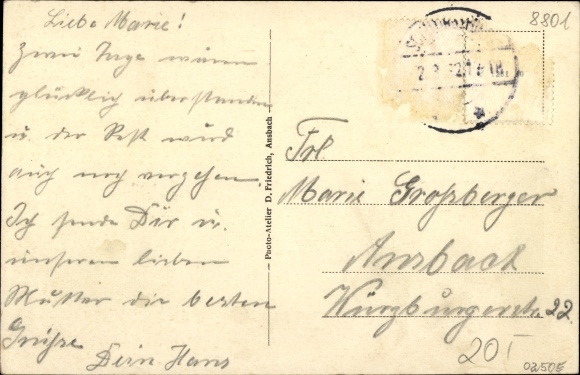 Liebe Marie!
Zwei Tage wären
glücklich überstanden
u. der Rest wird
auch noch vergehen.
Ich sende Dir u.
unseren lieben
Mutter die besten
Grüße
Dein Hans
Photo-Atelier D. Friedrich, Ansbach
8801
Frl.
Marie Großberger
Ansbach
Würzburgerstr. 22.
20